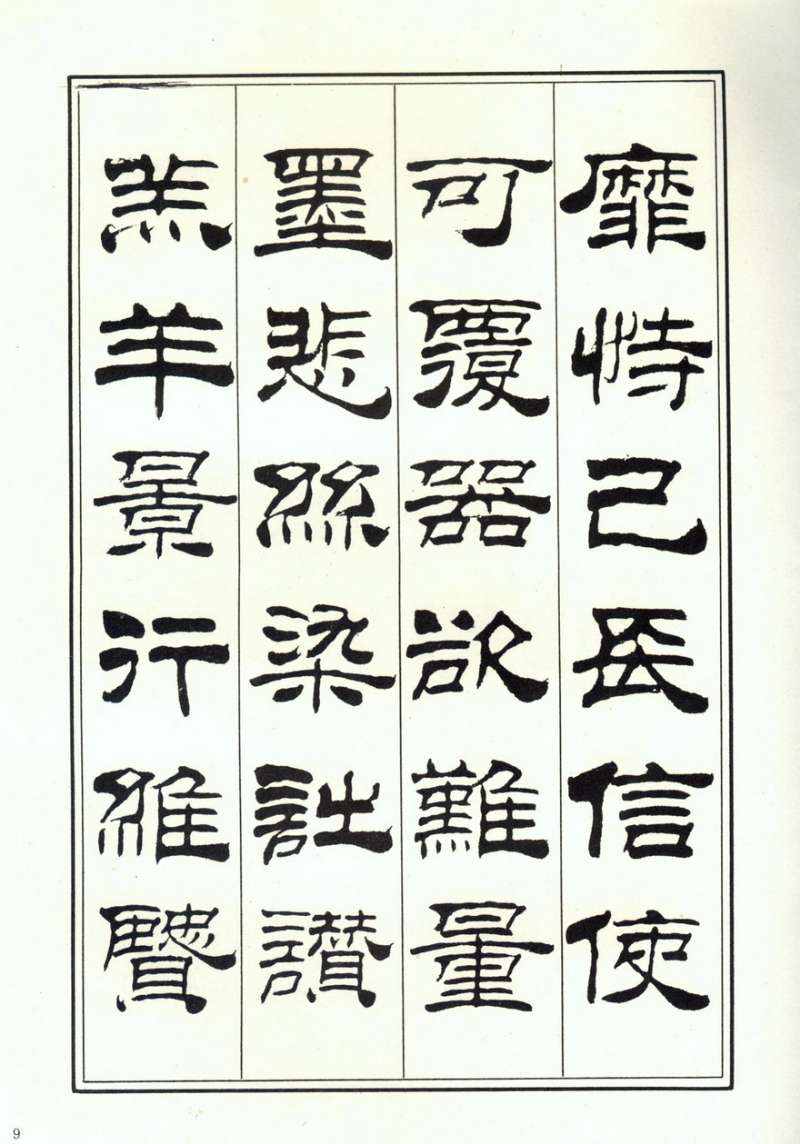 靡恃己長信使
可覆器欲難量
墨悲絲染詩讃
羔羊景行維賢
9